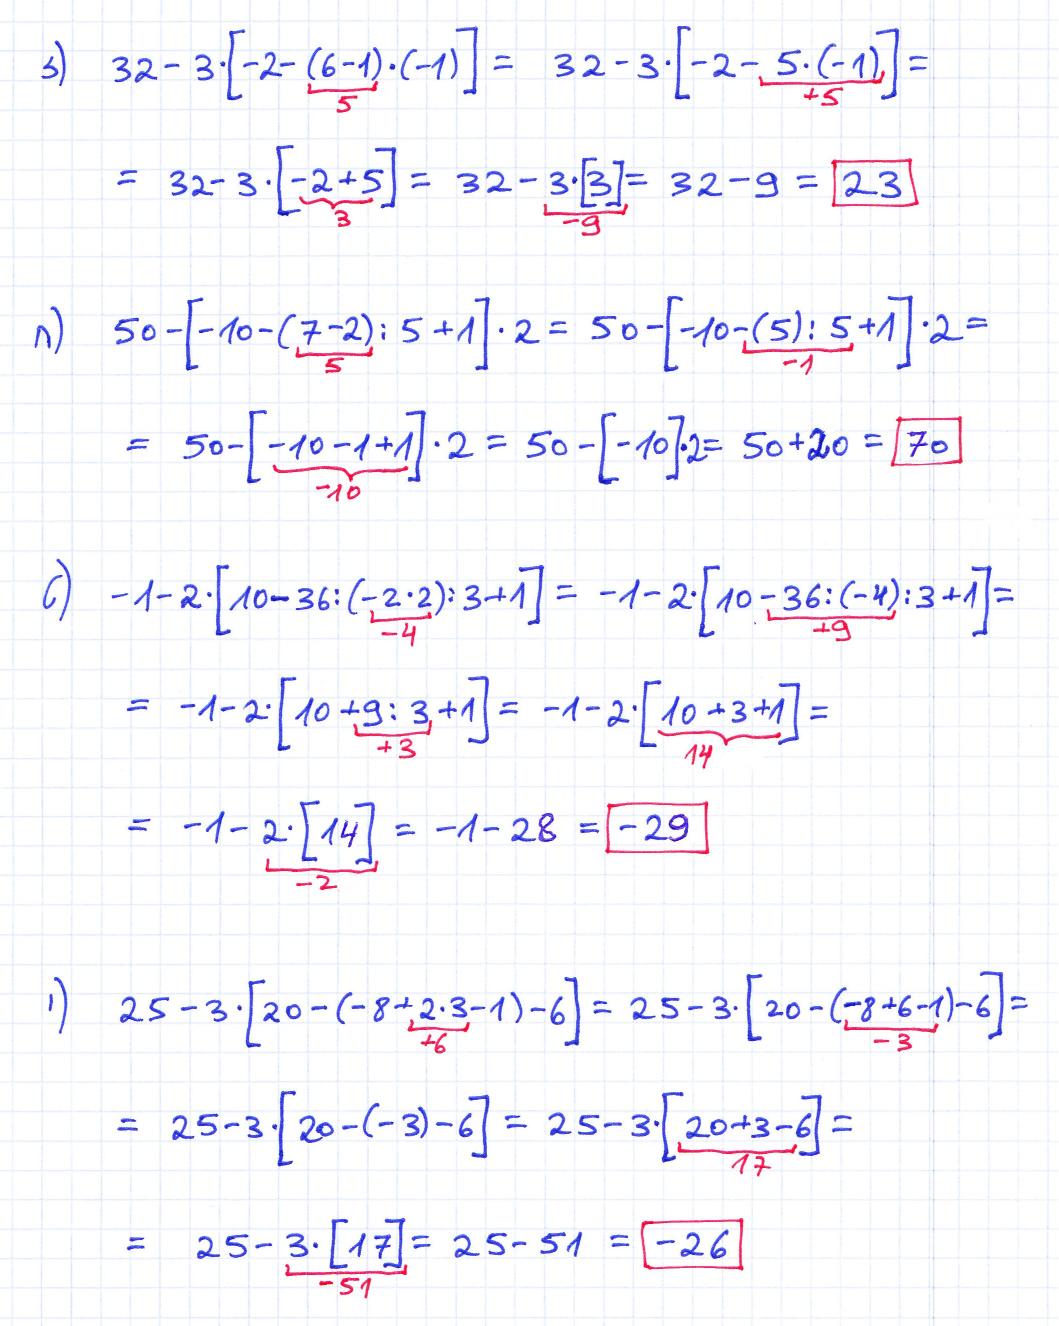 s) 32-3·[-2-(6-1)·(-1)] = 32-3·[-2-5·(-1)] =
5 +5
= 32-3·[-2+5] = 32-3·[3] = 32-9 = 23
3 -9
n) 50-[-10-(7-2):5+1]·2 = 50-[-10-(5):5+1]·2 =
5 -1
= 50-[-10-1+1]·2 = 50-[-10]·2 = 50+20 = 70
-10
c) -1-2·[10-36:(-2·2):3+1] = -1-2·[10-36:(-4):3+1] =
-4 +9
= -1-2·[10+9:3+1] = -1-2·[10+3+1] =
+3 14
= -1-2·[14] = -1-28 = -29
-2
1) 25-3·[20-(-8+2·3-1)-6] = 25-3·[20-(-8+6-1)-6] =
+6 -3
= 25-3·[20-(-3)-6] = 25-3·[20+3-6] =
17
= 25-3·[17] = 25-51 = -26
-51